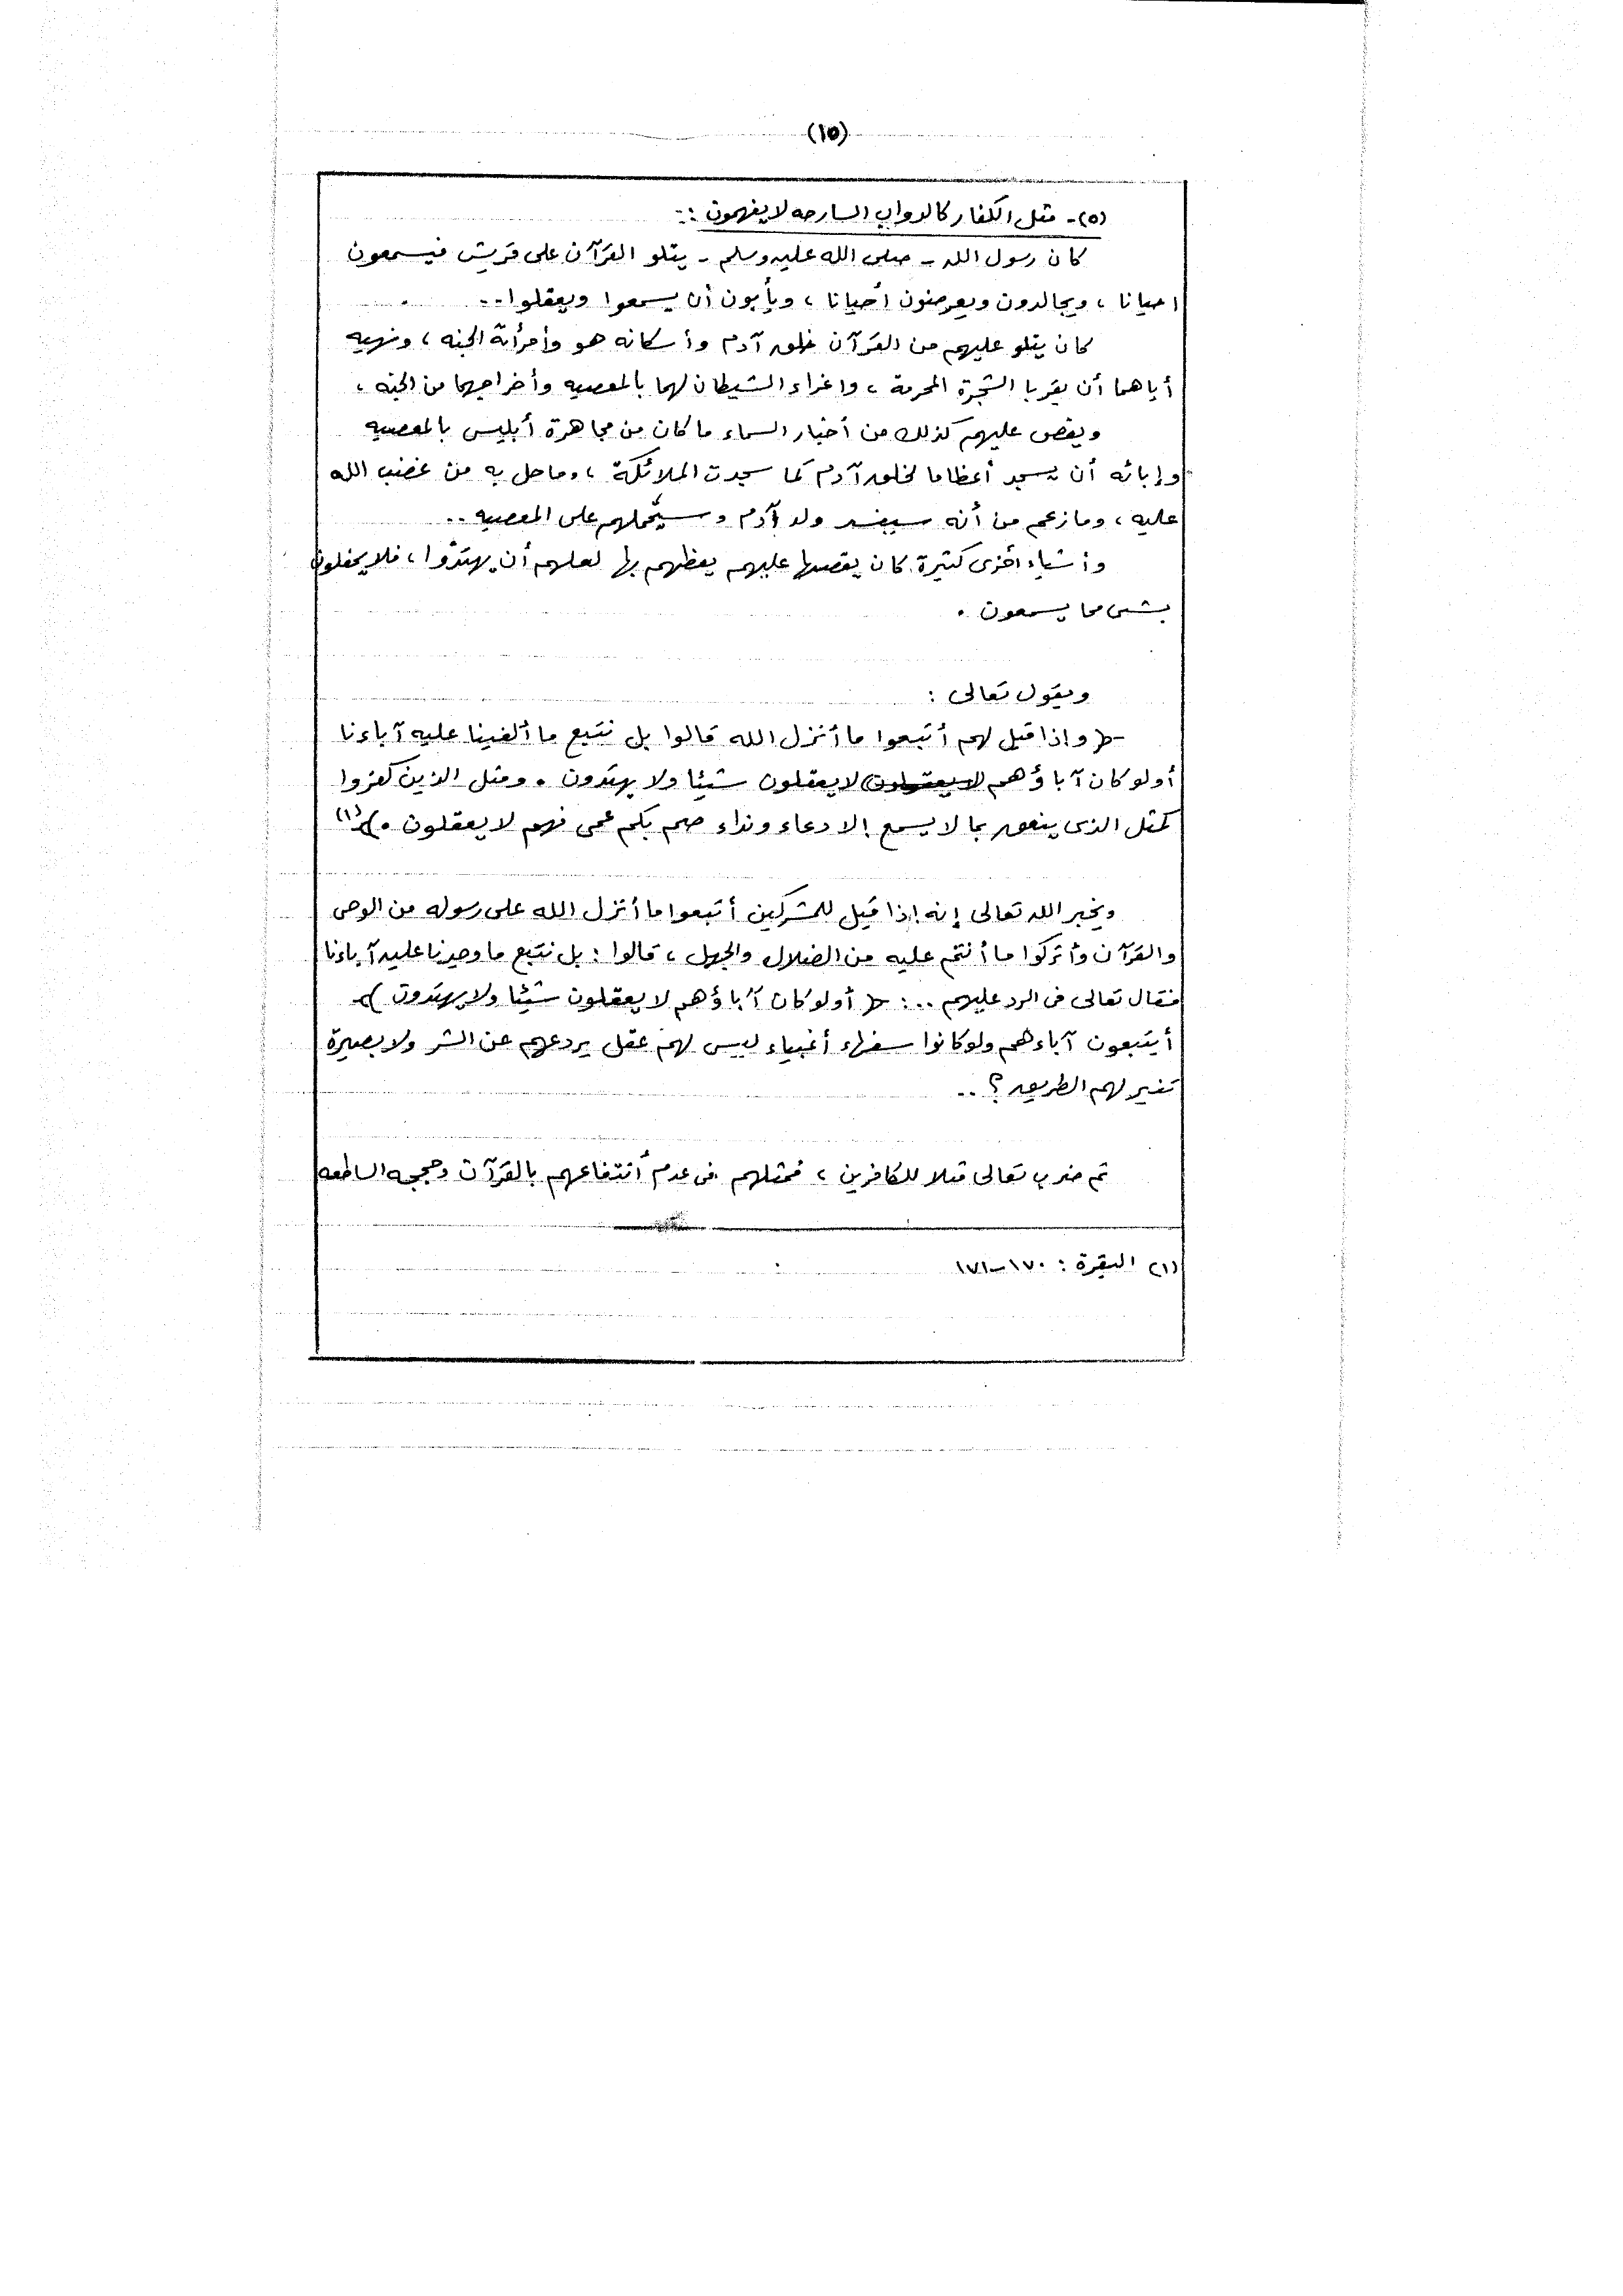 (١٥)
(٥)- مثل الكفار كالدواب السارحه لا يفهمون :-
كان رسول الله - صلى الله عليه وسلم - يتلو القرآن على قريش فيسمعون
احيانا ، ويجالدون ويعرضون أحيانا ، ويأبون أن يسمعوا ويعقلوا..
كان يتلو عليهم من القرآن خلق آدم وأسكانه هو وأمرأته الجنه ، ونهيه
أياهما أن يقربا الشجرة المحرمة ، واغراء الشيطان لهما بالمعصيه وأخراجهما من الجنه ،
ويقص عليهم كذلك من أخبار السماء ما كان من مجاهرة أبليس بالمعصيه
وإبائه أن يسجد أعظاما لخلق آدم كما سجدت الملائكة ، وما حل به من غضب الله
عليه ، وما زعم من أنه سيفسد ولد آدم وسيحملهم على المعصيه ..
وأشياء أخرى كثيرة كان يقصها عليهم يعظهم بها لعلهم أن يهتدوا ، فلا يحفلون
بشى مما يسمعون .
ويقول تعالى :
-﴿ وإذا قيل لهم أتبعوا ما أنزل الله قالوا بل نتبع ما ألفينا عليه آباءنا
أولو كان آباؤهم لا يعقلون لا يعقلون شيئا ولا يهتدون . ومثل الذين كفروا
كمثل الذى ينعق بما لا يسمع إلا دعاء ونداء صم بكم عمى فهم لا يعقلون . ﴾(١)
ويخبر الله تعالى إنه إذا قيل للمشركين أتبعوا ما أنزل الله على رسوله من الوحى
والقرآن وأتركوا ما أنتم عليه من الضلال والجهل ، قالوا : بل نتبع ما وجدنا عليه آباءنا
فقال تعالى فى الرد عليهم ..: ﴿ أولو كان آباؤهم لا يعقلون شيئا ولا يهتدون ﴾
أيتبعون آباءهم ولو كانوا سفهاء أغبياء ليس لهم عقل يردعهم عن الشر ولا بصيرة
تنير لهم الطريق ؟ ..
ثم ضرب تعالى مثلا للكافرين ، فمثلهم فى عدم أنتفاعهم بالقرآن وحججه الساطعه
(١) البقرة : ١٧٠-١٧١